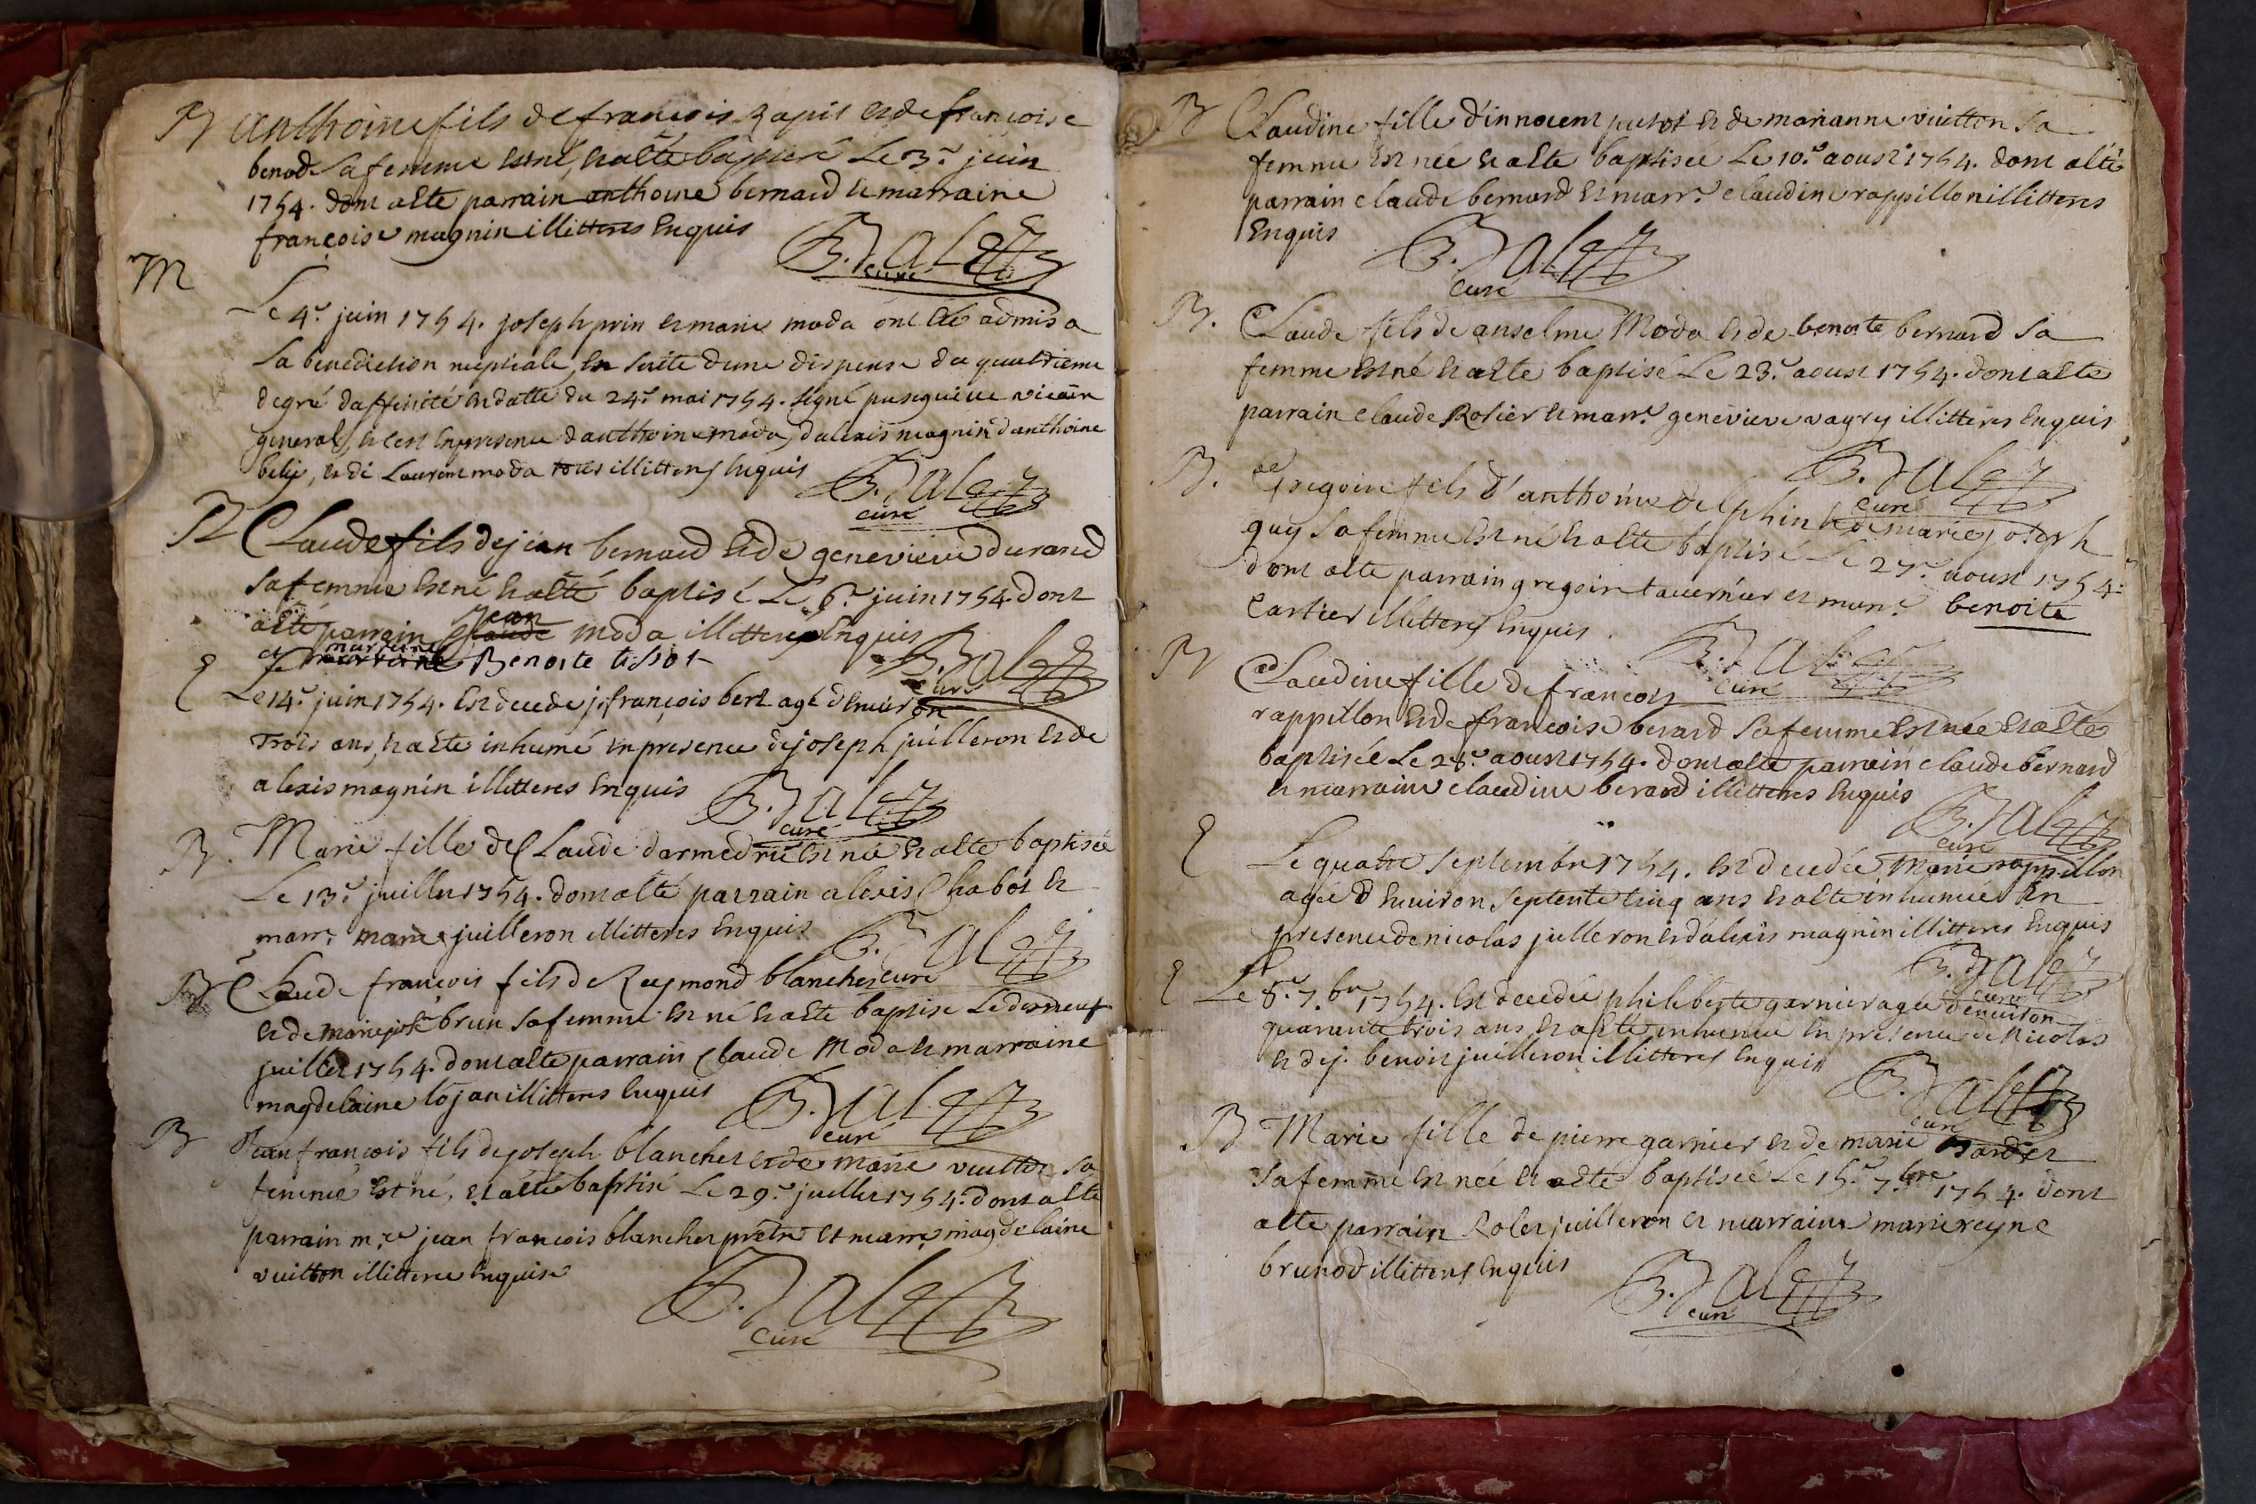 B anthoine fils de françois Rapit et de françoise
benod sa femme est né, et a eté baptisé Le 3.e juin
1754. dont a eté parrain anthoine bernard et marraine
françoise magnin illitteres Enquis
B. Jalez
curé
M
Le 4.e juin 1754. joseph prin et marie moda ont eté admis a
La benediction nuptiale, En suite d'une dispense du quatrieme
degré daffinité en datte du 24.e mai 1754. signé vicaire
general, et c'est En presence d'anthoine moda, d'alexis magnin d'anthoine
bely, et de Laurent moda tous illitteres Enquis
B. Jalez
curé
B Claude fils de jean bernard et de genevieve durand
sa femme est né et a eté baptisé Le 6.e juin 1754. dont
a eté parrain jean moda illitteres Enquis
et marraine Benoite tissot
B. Jalez
curé
E Le 14.e juin 1754. est decede j. françois bert agé d'Environ
Trois ans, et a eté inhumé en presence de joseph juilleron et de
alexis magnin illitteres Enquis
B. Jalez
curé
B. Marie fille de Claude darmedrie est née et a eté baptisée
Le 13.e juillet 1754. dont a eté parrain alexis Chabot et
marr.e marie juilleron illitteres Enquis
B. Jalez
curé
B Claude françois fils de Reymond blanchet
et de marie jose brun sa femme est né et a eté baptise Le dis neuf
juillet 1754. dont a eté parrain Claude Moda et marraine
magdelaine lojan illitteres Enquis
B. Jalez
curé
B Jean françois fils de joseph blanchet et de marie vuitton sa
femme est né, et a eté baptisé Le 29.e juillet 1754. dont a eté
parrain m.re jean françois blanchet prêtre et marr.e magdelaine
vuitton illitteree Enquise
B. Jalez
curé
B Claudine fille d'innocent putot et de marianne vuitton sa
femme est née et a eté baptisée Le 10.e aoust 1754. dont a été
parrain claude bernard et marr.e claudine rappillon illitteres
Enquis
B. Jalez
curé
B. Claude fils de anselme Moda et de benoite bernard sa
femme est né et a eté baptisé Le 23.e aoust 1754. dont a eté
parrain claude Rosier et marr.e genevieve vagry illitteres Enquis
B. Jalez
curé
B. Gregoire fils d'anthoine delphin et de marie joseph
guy sa femme est né et a eté baptisé Le 27.e aoust 1754.
dont a eté parrain gregoire tavernier et marr.e benoite
Cartier illitteres Enquis
B. Jalez
curé
B Claudine fille de françois
rappillon et de françoise berard sa femme est née et a eté
baptisée Le 28.e aoust 1754. dont a eté parrain claude bernard
et marraine claudine berard illitteres Enquis
B. Jalez
curé
E Le quatre septembre 1754. est decedée Marie rappillon
agée d'Environ septente cinq ans et a eté inhumée En
presence de nicolas julleron et d'alexis magnin illitteres Enquis
B. Jalez
curé
E Le 8.e 7.bre 1754. est decedée philiberte garnier agée d'environ
quarante trois ans et a eté inhumée En presence de Nicolas
et de j. benoit juilleron illitteres Enquis
B. Jalez
curé
B Marie fille de pierre garnier et de marie
sa femme est née et a eté baptisée Le 15.e 7.bre 1754. dont
a eté parrain Rolet juilleron et marraine marie reyne
brunod illitteres Enquis
B. Jalez
curé